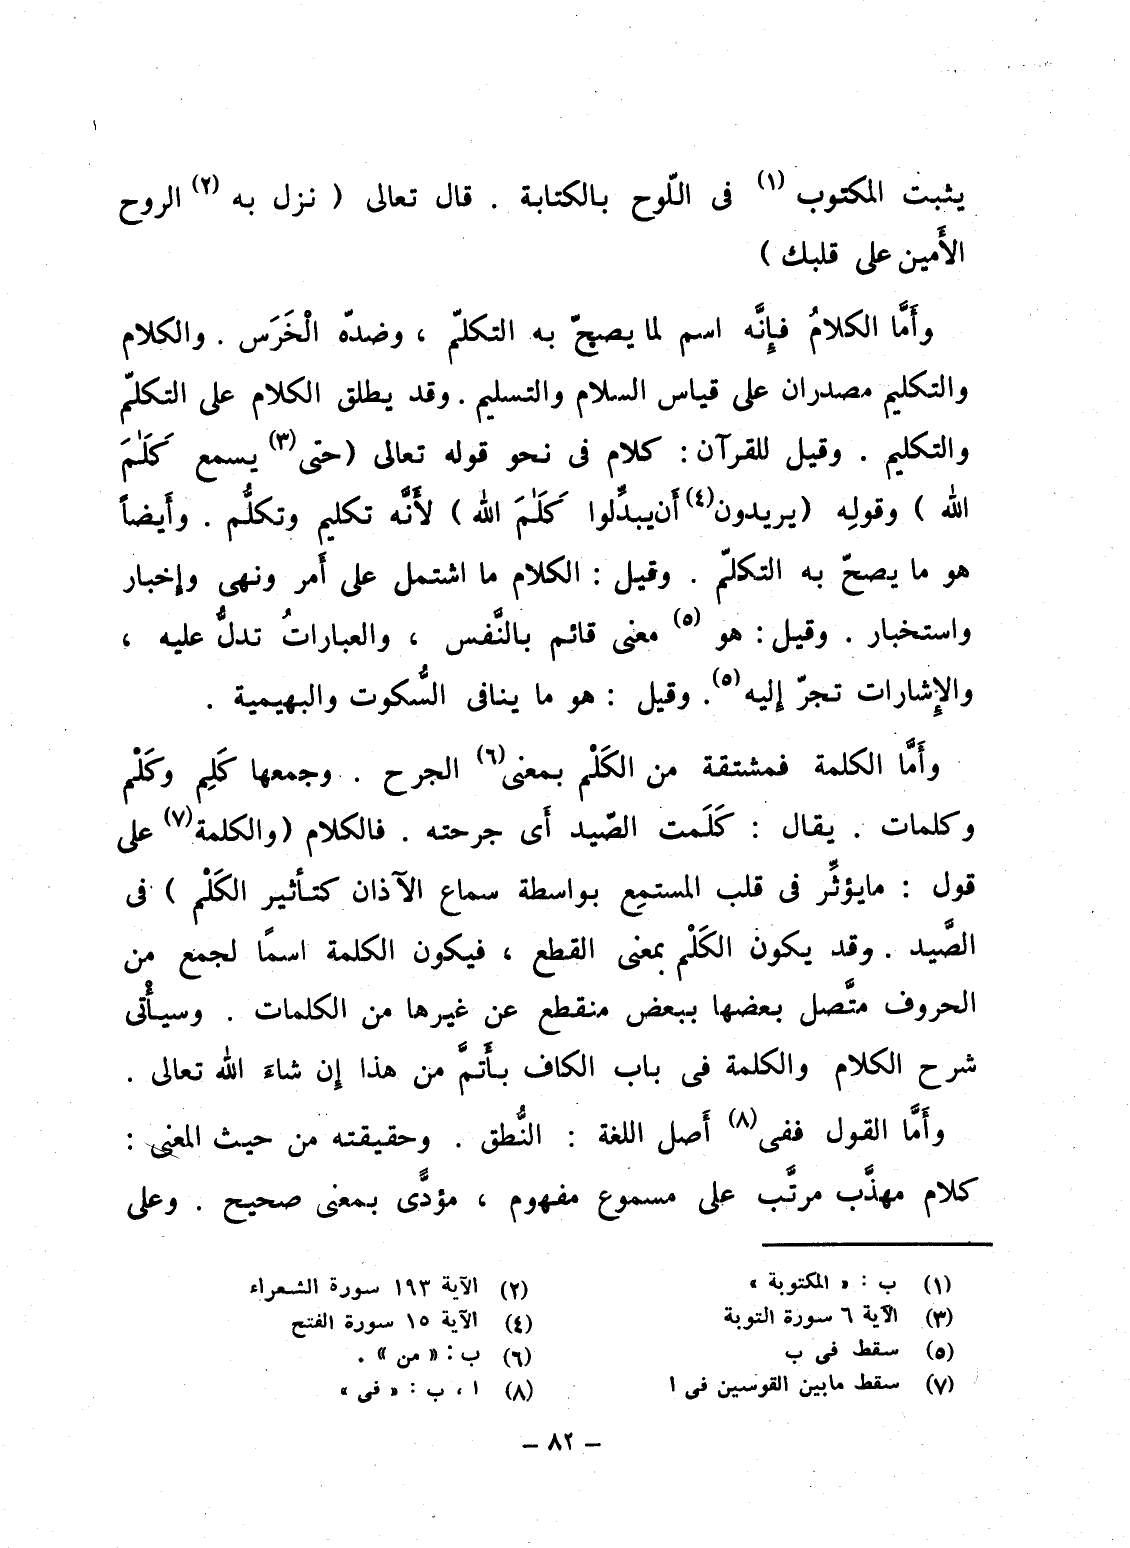 يثبت المكتوب (١) فى اللّوح بالكتابة . قال تعالى ( نزل به (٢) الروح
الأَمين على قلبك )
وأَمَّا الكلامُ فإِنَّه اسم لما يصحّ به التكلّم ، وضدّه الْخَرَس . والكلام
والتكليم مصدران على قياس السلام والتسليم . وقد يطلق الكلام على التكلّم
والتكليم . وقيل للقرآن : كلام فى نحو قوله تعالى (حتى (٣) يسمع كَلَٰمَ
الله ) وقولِه (يريدون (٤) أَن يبدِّلوا كَلَٰمَ الله ) لأَنَّه تكليم وتكلُّم . وأَيضاً
هو ما يصحّ به التكلّم . وقيل : الكلام ما اشتمل على أَمر ونهى وإِخبار
واستخبار . وقيل : هو (٥) معنى قائم بالنَّفس ، والعباراتُ تدلُّ عليه ،
والإِشارات تجرّ إِليه (٥) . وقيل : هو ما ينافى السُّكوت والبهيمية .
وأَمَّا الكلمة فمشتقة من الكَلْم بمعنى (٦) الجرح . وجمعها كَلِم وكَلْم
وكلمات . يقال : كَلَمت الصّيد أَى جرحته . فالكلام (والكلمة (٧) على
قول : مايؤثِّر فى قلب المستمِع بواسطة سماع الآذان كتأثير الكَلْم ) فى
الصَّيد . وقد يكون الكَلْم بمعنى القطع ، فيكون الكلمة اسمًا لجمع من
الحروف متَّصل بعضها ببعض منقطع عن غيرها من الكلمات . وسيأْتى
شرح الكلام والكلمة فى باب الكاف بأَتمَّ من هذا إِن شاءَ الله تعالى .
وأَمَّا القول ففى (٨) أَصل اللغة : النُّطق . وحقيقته من حيث المعنى :
كلام مهذَّب مرتَّب على مسموع مفهوم ، مؤدًّى بمعنى صحيح . وعلى
(١) ب : « المكتوبة »
(٢) الآية ١٩٣ سورة الشعراء
(٣) الآية ٦ سورة التوبة
(٤) الآية ١٥ سورة الفتح
(٥) سقط فى ب
(٦) ب : « من » .
(٧) سقط مابين القوسين فى ا
(٨) ا ، ب : « فى »
– ٨٢ –